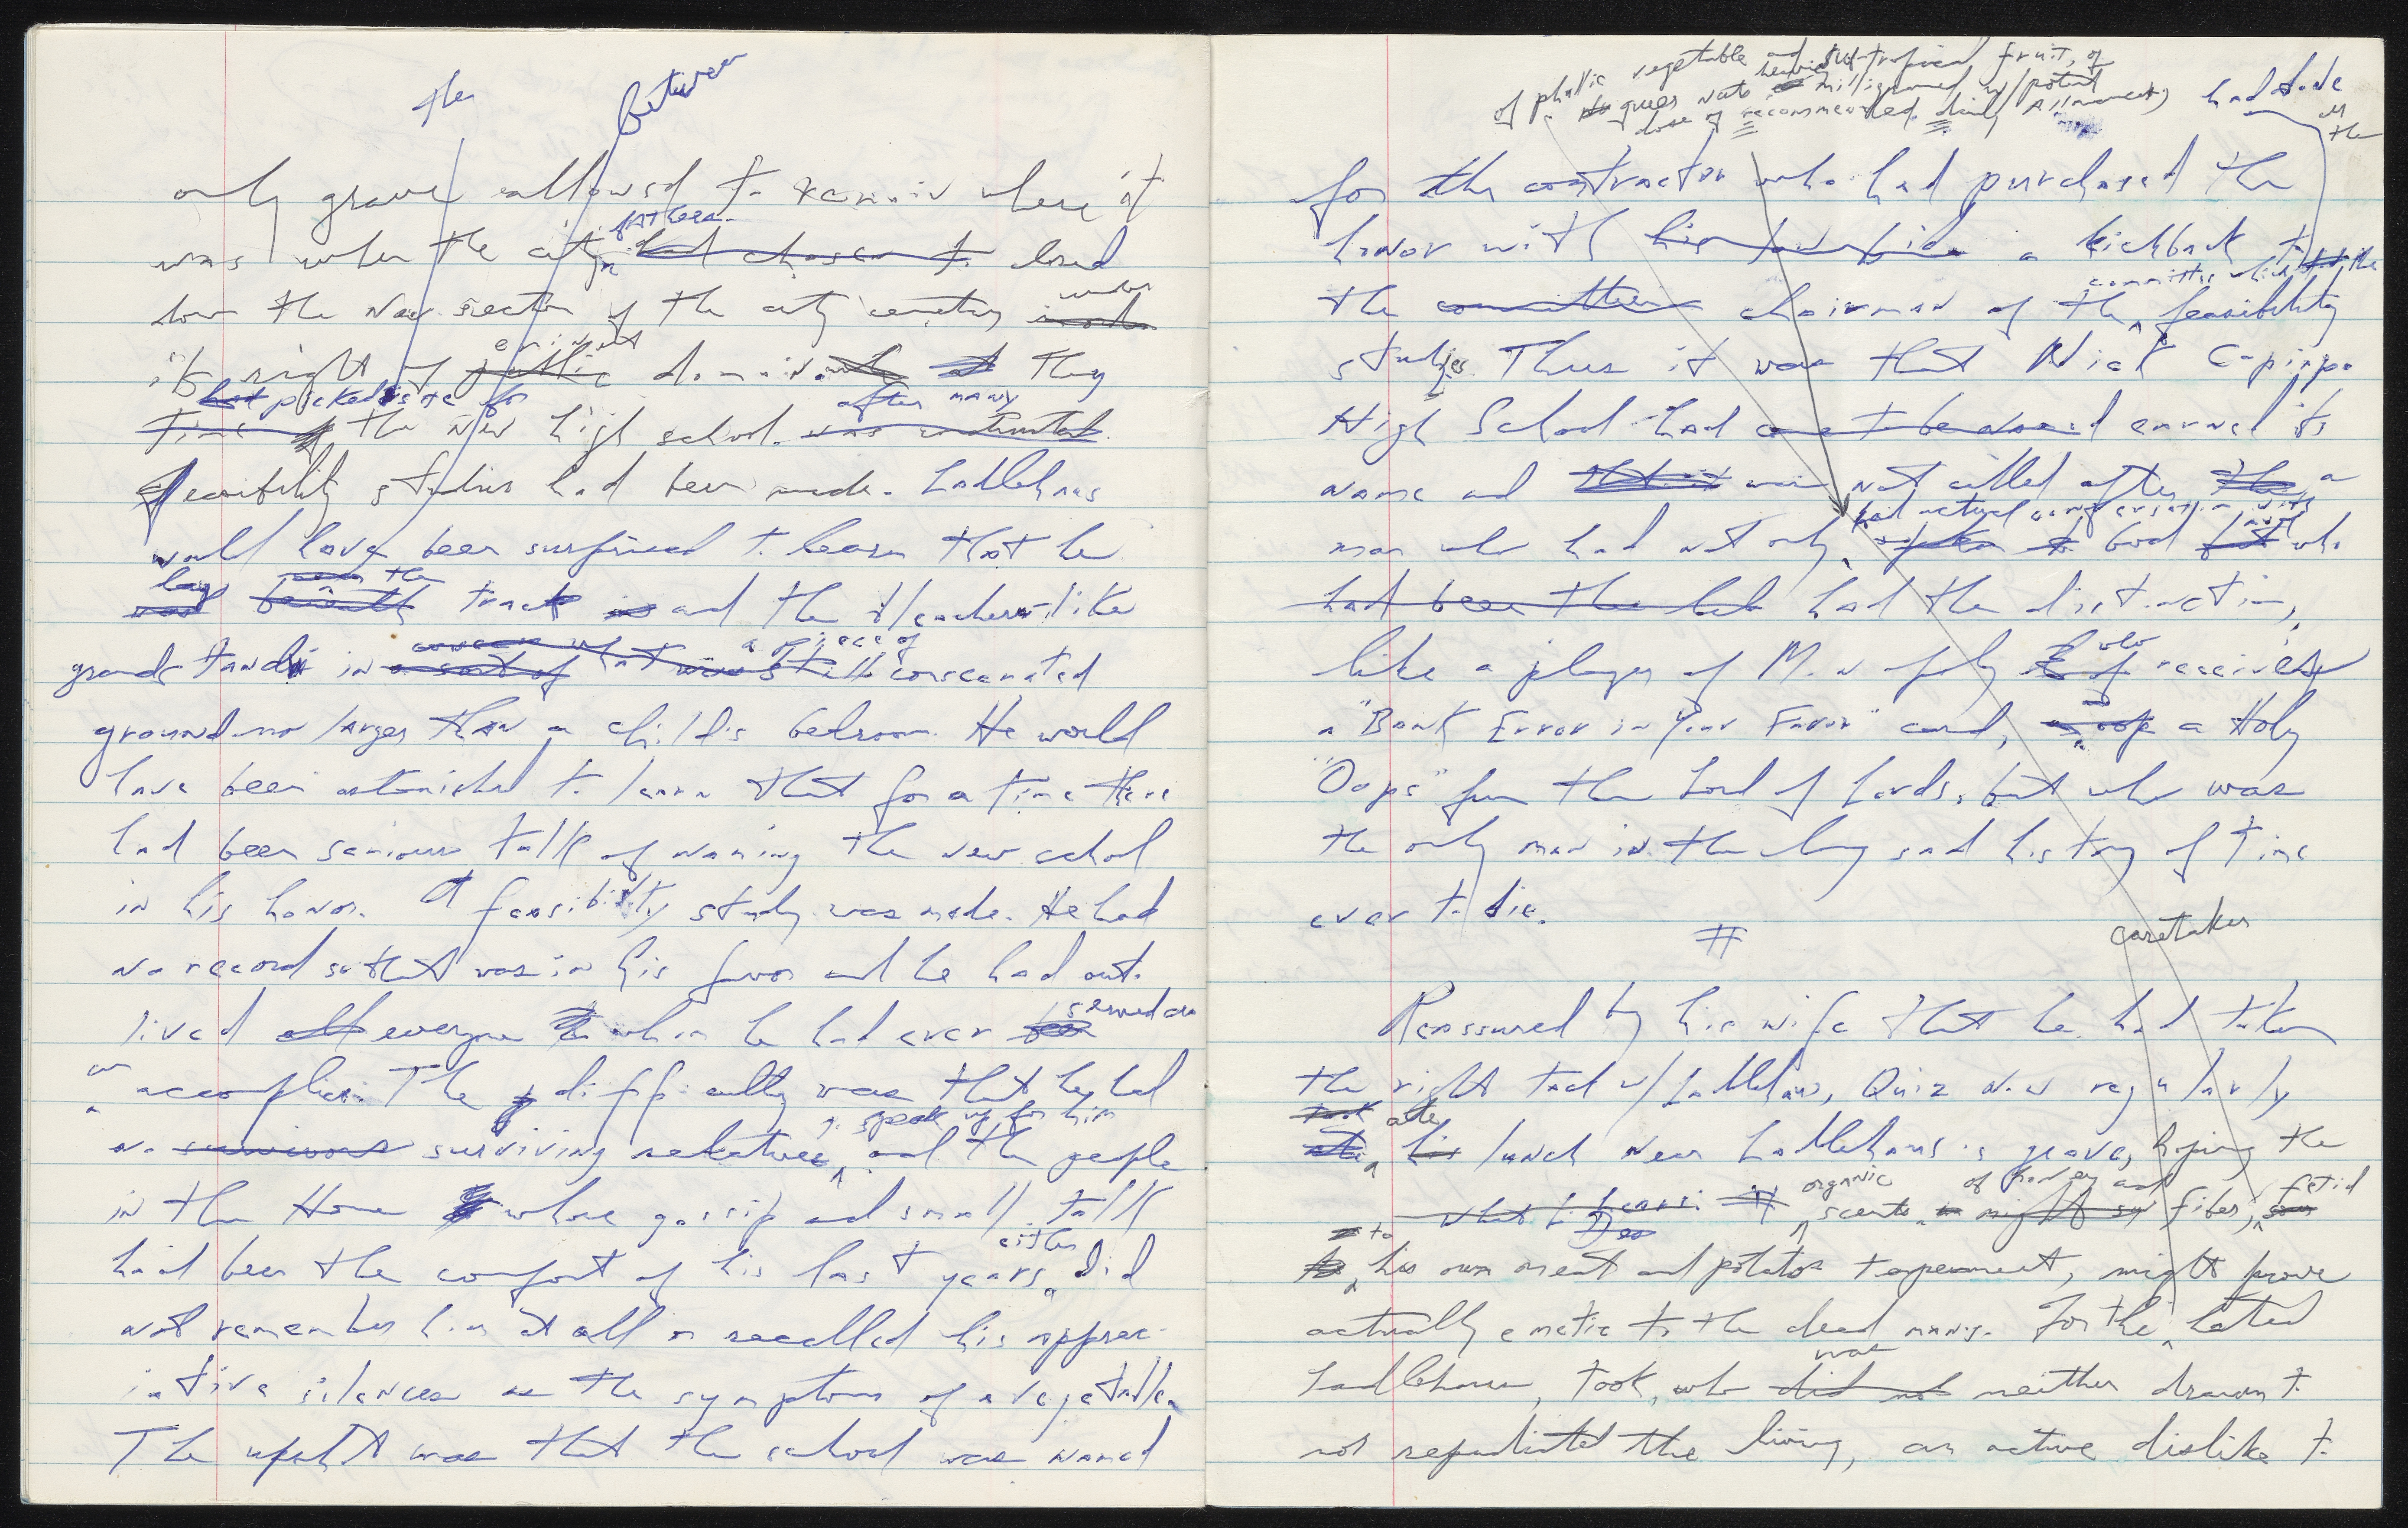 the between
only grave allowed to remain where it
was when the city fathers had chosen to closed
down the New section of the city cemetery under
its right of public eminent domain. They
Time had picked the site for the new high school. was constructed after many
feasibility studies had been made. Ladlehaus
would have been surprised to learn that he
was lay beneath the track and the bleachers-like
grandstands in a sort of what was still a piece of consecrated
ground no larger than a child's bedroom. He would
have been astonished to learn that for a time there
had been serious talk of naming the new school
in his honor. A feasibility study was made. He had
no record so that was in his favor and he had out-
lived all everyone whom he had ever served as
an accomplice. The difficulty was that he had
no survivors surviving relatives to speak up for him and the people
in the Home whose gossip and small talk
had been the comfort of his last years either did
not remember him at all or recalled his apprec-
iative silences as the symptoms of a vegetable.
The upshot was that the school was named
of phallic vegetable and sub-tropical fruit, of
queer nuts milligramed w/ potent
dose of recommended daily Allowances had made
for the contractor who had purchased the
honor with a kickback to
the committee chairman of the committee which feasibility
studies. Thus it was that Nick Capippo
High School had come to be named earned its
name and was not called after the a
man who had not only had actual conversation with spoken to God but who
had been the had the distinction,
like a player of Monopoly who receives
a "Bank Error in Your Favor" card, a Holy
"Oops" from the Lord of Lords, but who was
the only man in the long sad history of time
ever to die.
#
caretaker
Reassured by his wife that he had taken
the right tack w/ Ladlehaus, Quiz now regularly
took ate his lunch near Ladlehaus's grave, hoping the
organic scents of honey and fiber, fetid
to his own meat and potatos temperment, might prove
actually emetic to the dead man's. For the hated
Ladlehaus, took, who did not was neither drawn to
not repudiated the living, an active dislike to